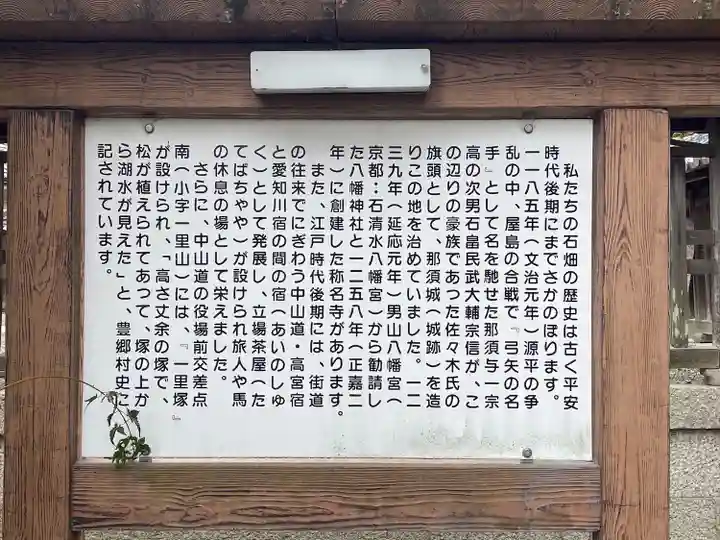 私たちの石畑の歴史は古く平安
時代後期にまでさかのぼります。
一一八五年(文治元年)源平の争
乱の中、屋島の合戦で『弓矢の名
手』として名を馳せた那須与一宗
高の次男石畠民武大輔宗信が、こ
の辺りの豪族であった佐々木氏の
旗頭として、那須城(城跡)を造
りこの地を治めていました。一二
三九年(延応元年)男山八幡宮(
京都:石清水八幡宮)から勧請し
た八幡神社と一二五八年(正嘉二
年)に創建した称名寺があります。
また、江戸時代後期には、街道
の往来でにぎわう中山道・高宮宿
と愛知川宿の間の宿(あいのしゅ
く)として発展し、立場茶屋(た
てばちゃや)が設けられ旅人や馬
の休息の場として栄えました。
さらに、中山道の役場前交差点
南(小字一里山)には、『一里塚』
が設けられ、「高さ丈余の塚で、
松が植えられてあって、塚の上か
ら湖水が見えた」と、豊郷村史に
記されています。